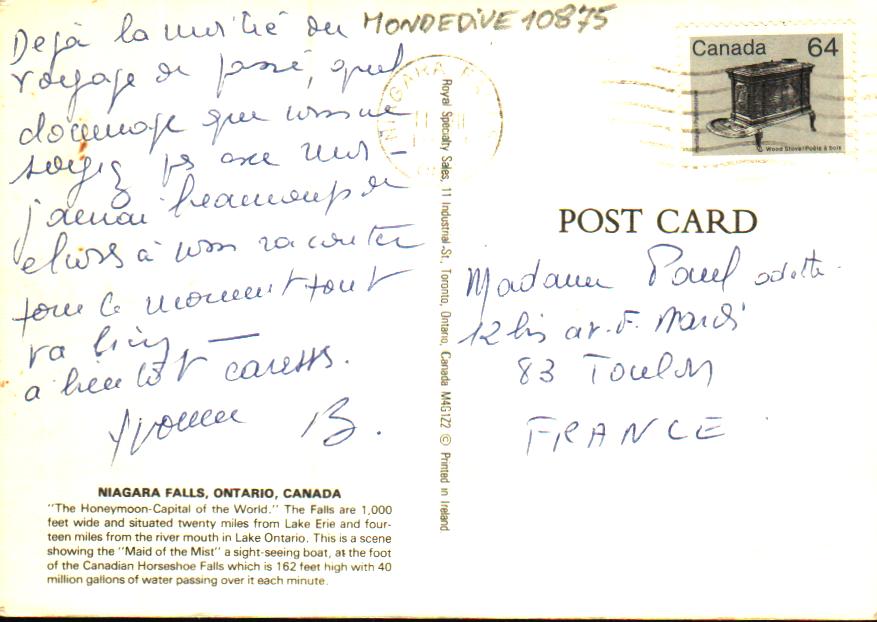 MONDEDIVE 10875
Déjà la moitié du
voyage de passé, quel
dommage que vous ne
soyez pas avec moi –
j'aurai beaucoup de
choses à vous raconter
pour le moment tout
va bien —
a bientôt caresses.
Yvonne B.
NIAGARA FALLS, ONTARIO, CANADA
"The Honeymoon-Capital of the World." The Falls are 1,000
feet wide and situated twenty miles from Lake Erie and four-
teen miles from the river mouth in Lake Ontario. This is a scene
showing the "Maid of the Mist" a sight-seeing boat, at the foot
of the Canadian Horseshoe Falls which is 162 feet high with 40
million gallons of water passing over it each minute.
NIAGARA F
Royal Specialty Sales, 11 Industrial St., Toronto, Ontario, Canada M4G1Z2 © Printed in Ireland
Canada 64
Wood Stove/Poêle à bois
POST CARD
Madame Paul odette
12 bis av. F.
83 Toulon
FRANCE